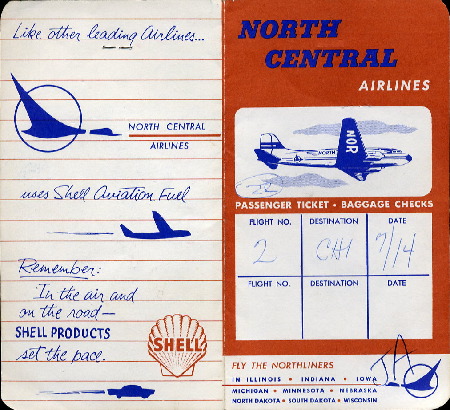 Like other leading Airlines...
NORTH CENTRAL
AIRLINES
uses Shell Aviation Fuel
Remember:
In the air and
on the road—
SHELL PRODUCTS
set the pace.
SHELL
NORTH
CENTRAL
AIRLINES
NORTH
NOR
PASSENGER TICKET • BAGGAGE CHECKS
FLIGHT NO. DESTINATION DATE
2 CHI 7/14
FLIGHT NO. DESTINATION DATE
JA
FLY THE NORTHLINERS
IN ILLINOIS • INDIANA • IOWA
MICHIGAN • MINNESOTA • NEBRASKA
NORTH DAKOTA • SOUTH DAKOTA • WISCONSIN